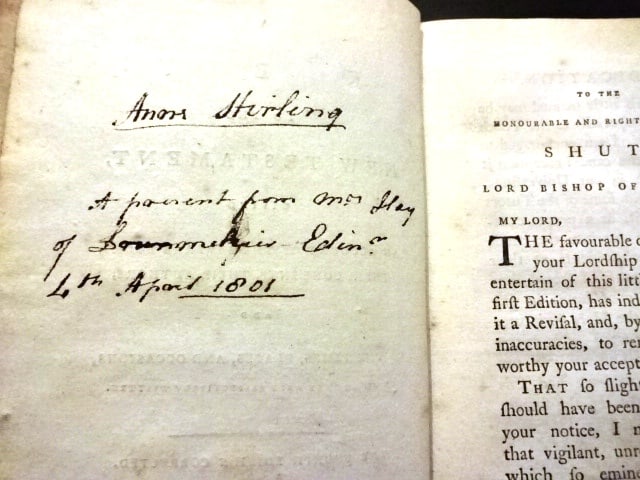 Anne Stirling
A present from Mrs Hay
of Drummelzier Edinr
4th April 1801
TO THE
HONOURABLE AND RIGHT
SHUT
LORD BISHOP OF
MY LORD,
THE favourable
your Lordſhip
entertain of this litt
firſt Edition, has ind
it a Reviſal, and, by
inaccuracies, to re
worthy your accept
THAT ſo ſligh
ſhould have been
your notice, I
that vigilant, unr
which ſo emine